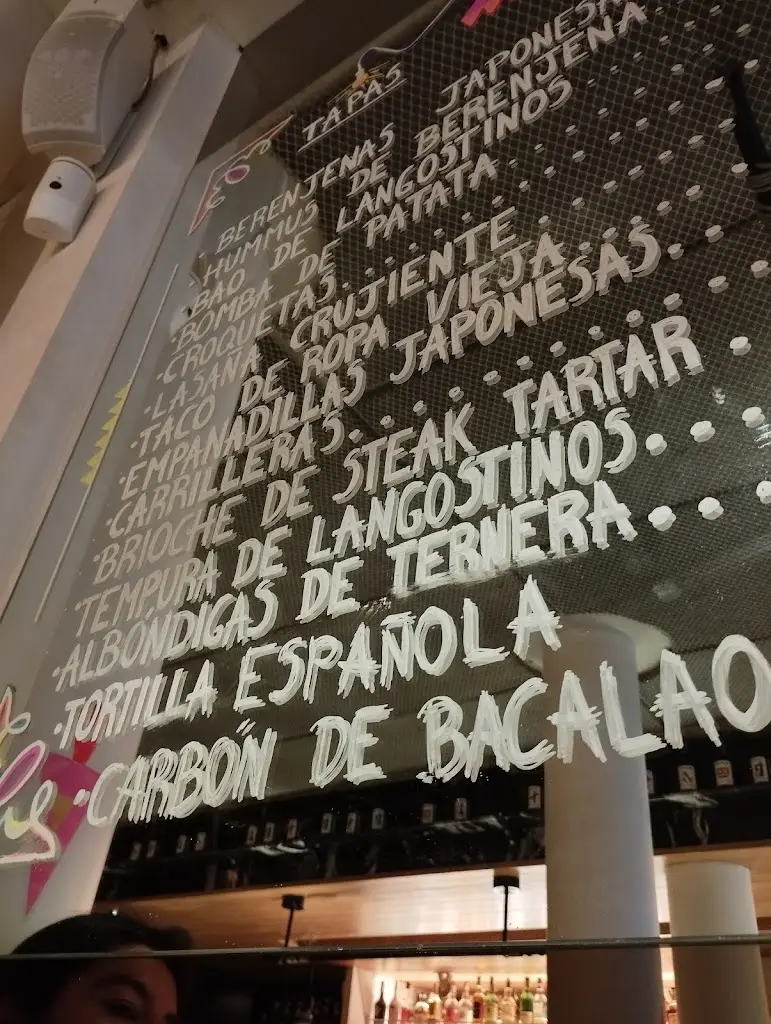 TAPAS
· BERENJENAS JAPONESA
· HUMMUS DE BERENJENA
· BAO DE LANGOSTINOS
· BOMBA DE PATATA
· CROQUETAS
· LASAÑA CRUJIENTE
· TACO DE ROPA VIEJA
· EMPANADILLAS JAPONESAS
· CARRILLERAS
· BRIOCHE DE STEAK TARTAR
· TEMPURA DE LANGOSTINOS
· ALBÓNDIGAS DE TERNERA
· TORTILLA ESPAÑOLA
· CARBÓN DE BACALAO